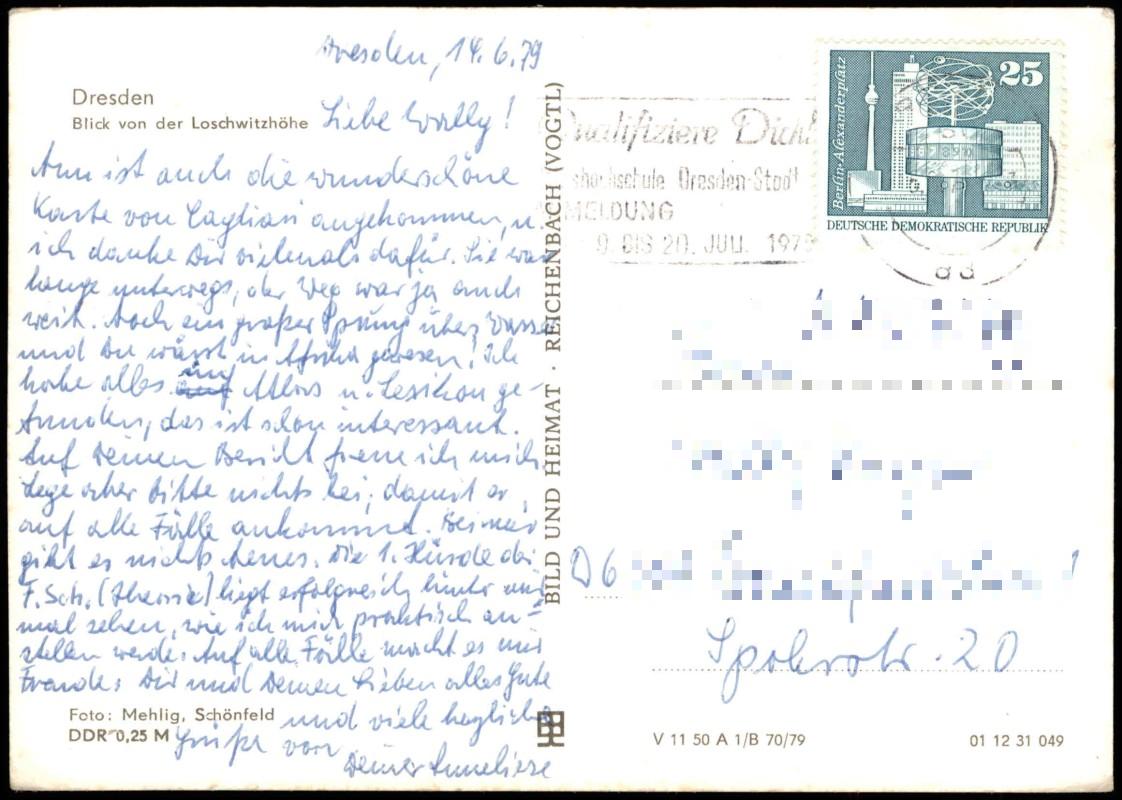 Dresden, 14.6.79
Dresden
Blick von der Loschwitzhöhe
Liebe Wally!
Nun ist auch die wunderschöne
Karte von Cagliari angekommen, u.
ich danke Dir vielmals dafür. Sie war
lange unterwegs, der Weg war ja auch
weit. Noch ein großer Sprung über's Wasser
und Du wärst in Afrika gewesen! Ich
habe alles im Atlas u. Lexikon ge-
funden, das ist schon interessant.
Auf Deinen Bericht freue ich mich.
Lege aber bitte nichts bei, damit er
auf alle Fälle ankommt. Bei mir
gibt es nichts Neues. Die 1. Hürde der
F. Sch. (Theorie) liegt erfolgreich hinter mir
mal sehen, wie ich mich praktisch an-
stellen werde. Auf alle Fälle macht es mir
Freude. Dir und Deinen Lieben alles Gute
und viele herzliche
Grüße von
Deiner Anneliese
Foto: Mehlig, Schönfeld
DDR 0,25 M
BILD UND HEIMAT · REICHENBACH (VOGTL)
Qualifiziere Dich!
shochschule Dresden-Stadt
MELDUNG
9. BIS 20. JULI 1979
25
Berlin-Alexanderplatz
DEUTSCHE DEMOKRATISCHE REPUBLIK
D 6
20
V 11 50 A 1/B 70/79
01 12 31 049